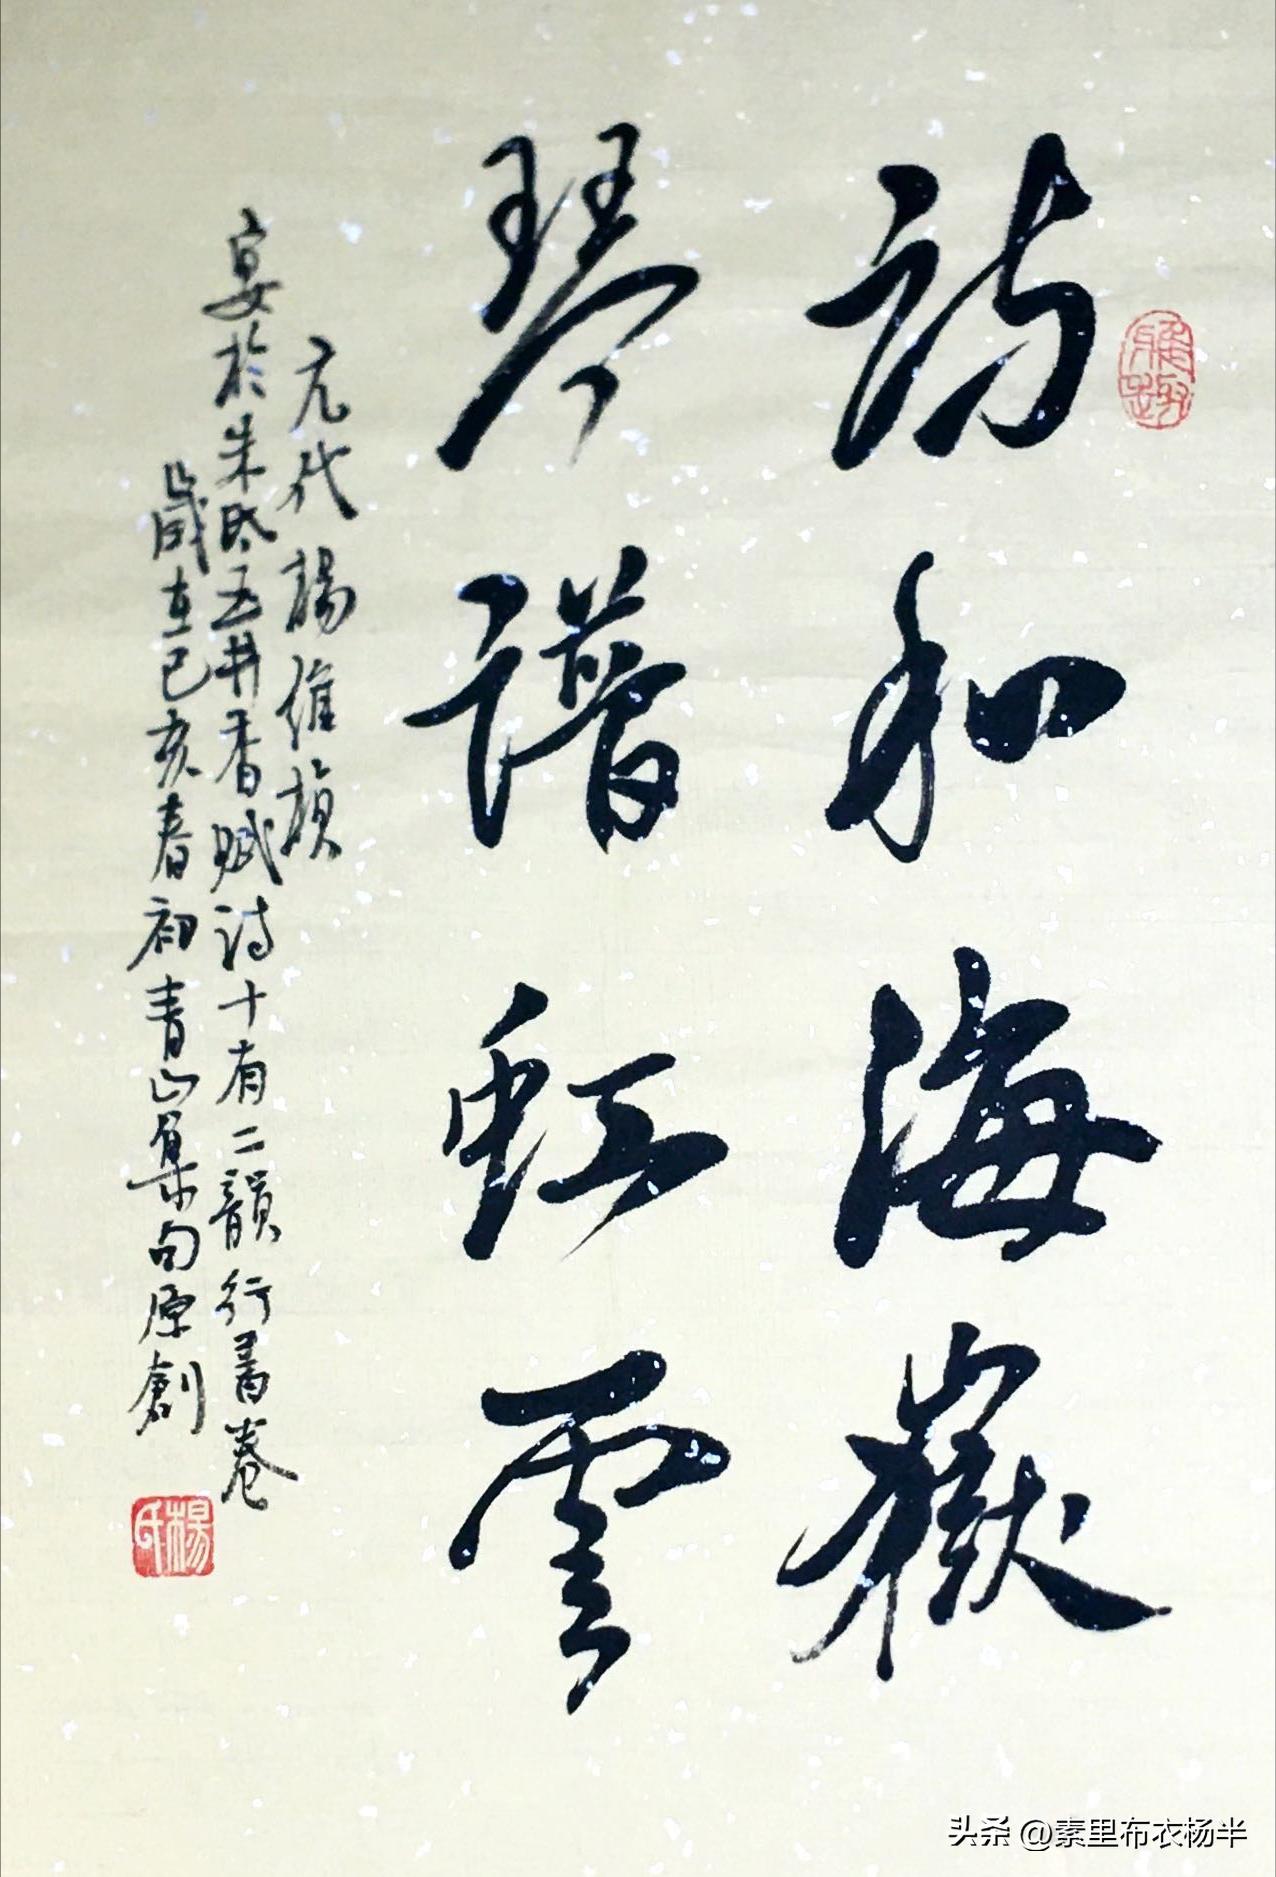 詩和海嶽
琴譜虹雲
元代楊維楨
宴於朱氏玉井香賦詩十有二韻行書卷
歲在己亥春初青山集句原創
楊氏
头杀 @素里布衣杨半